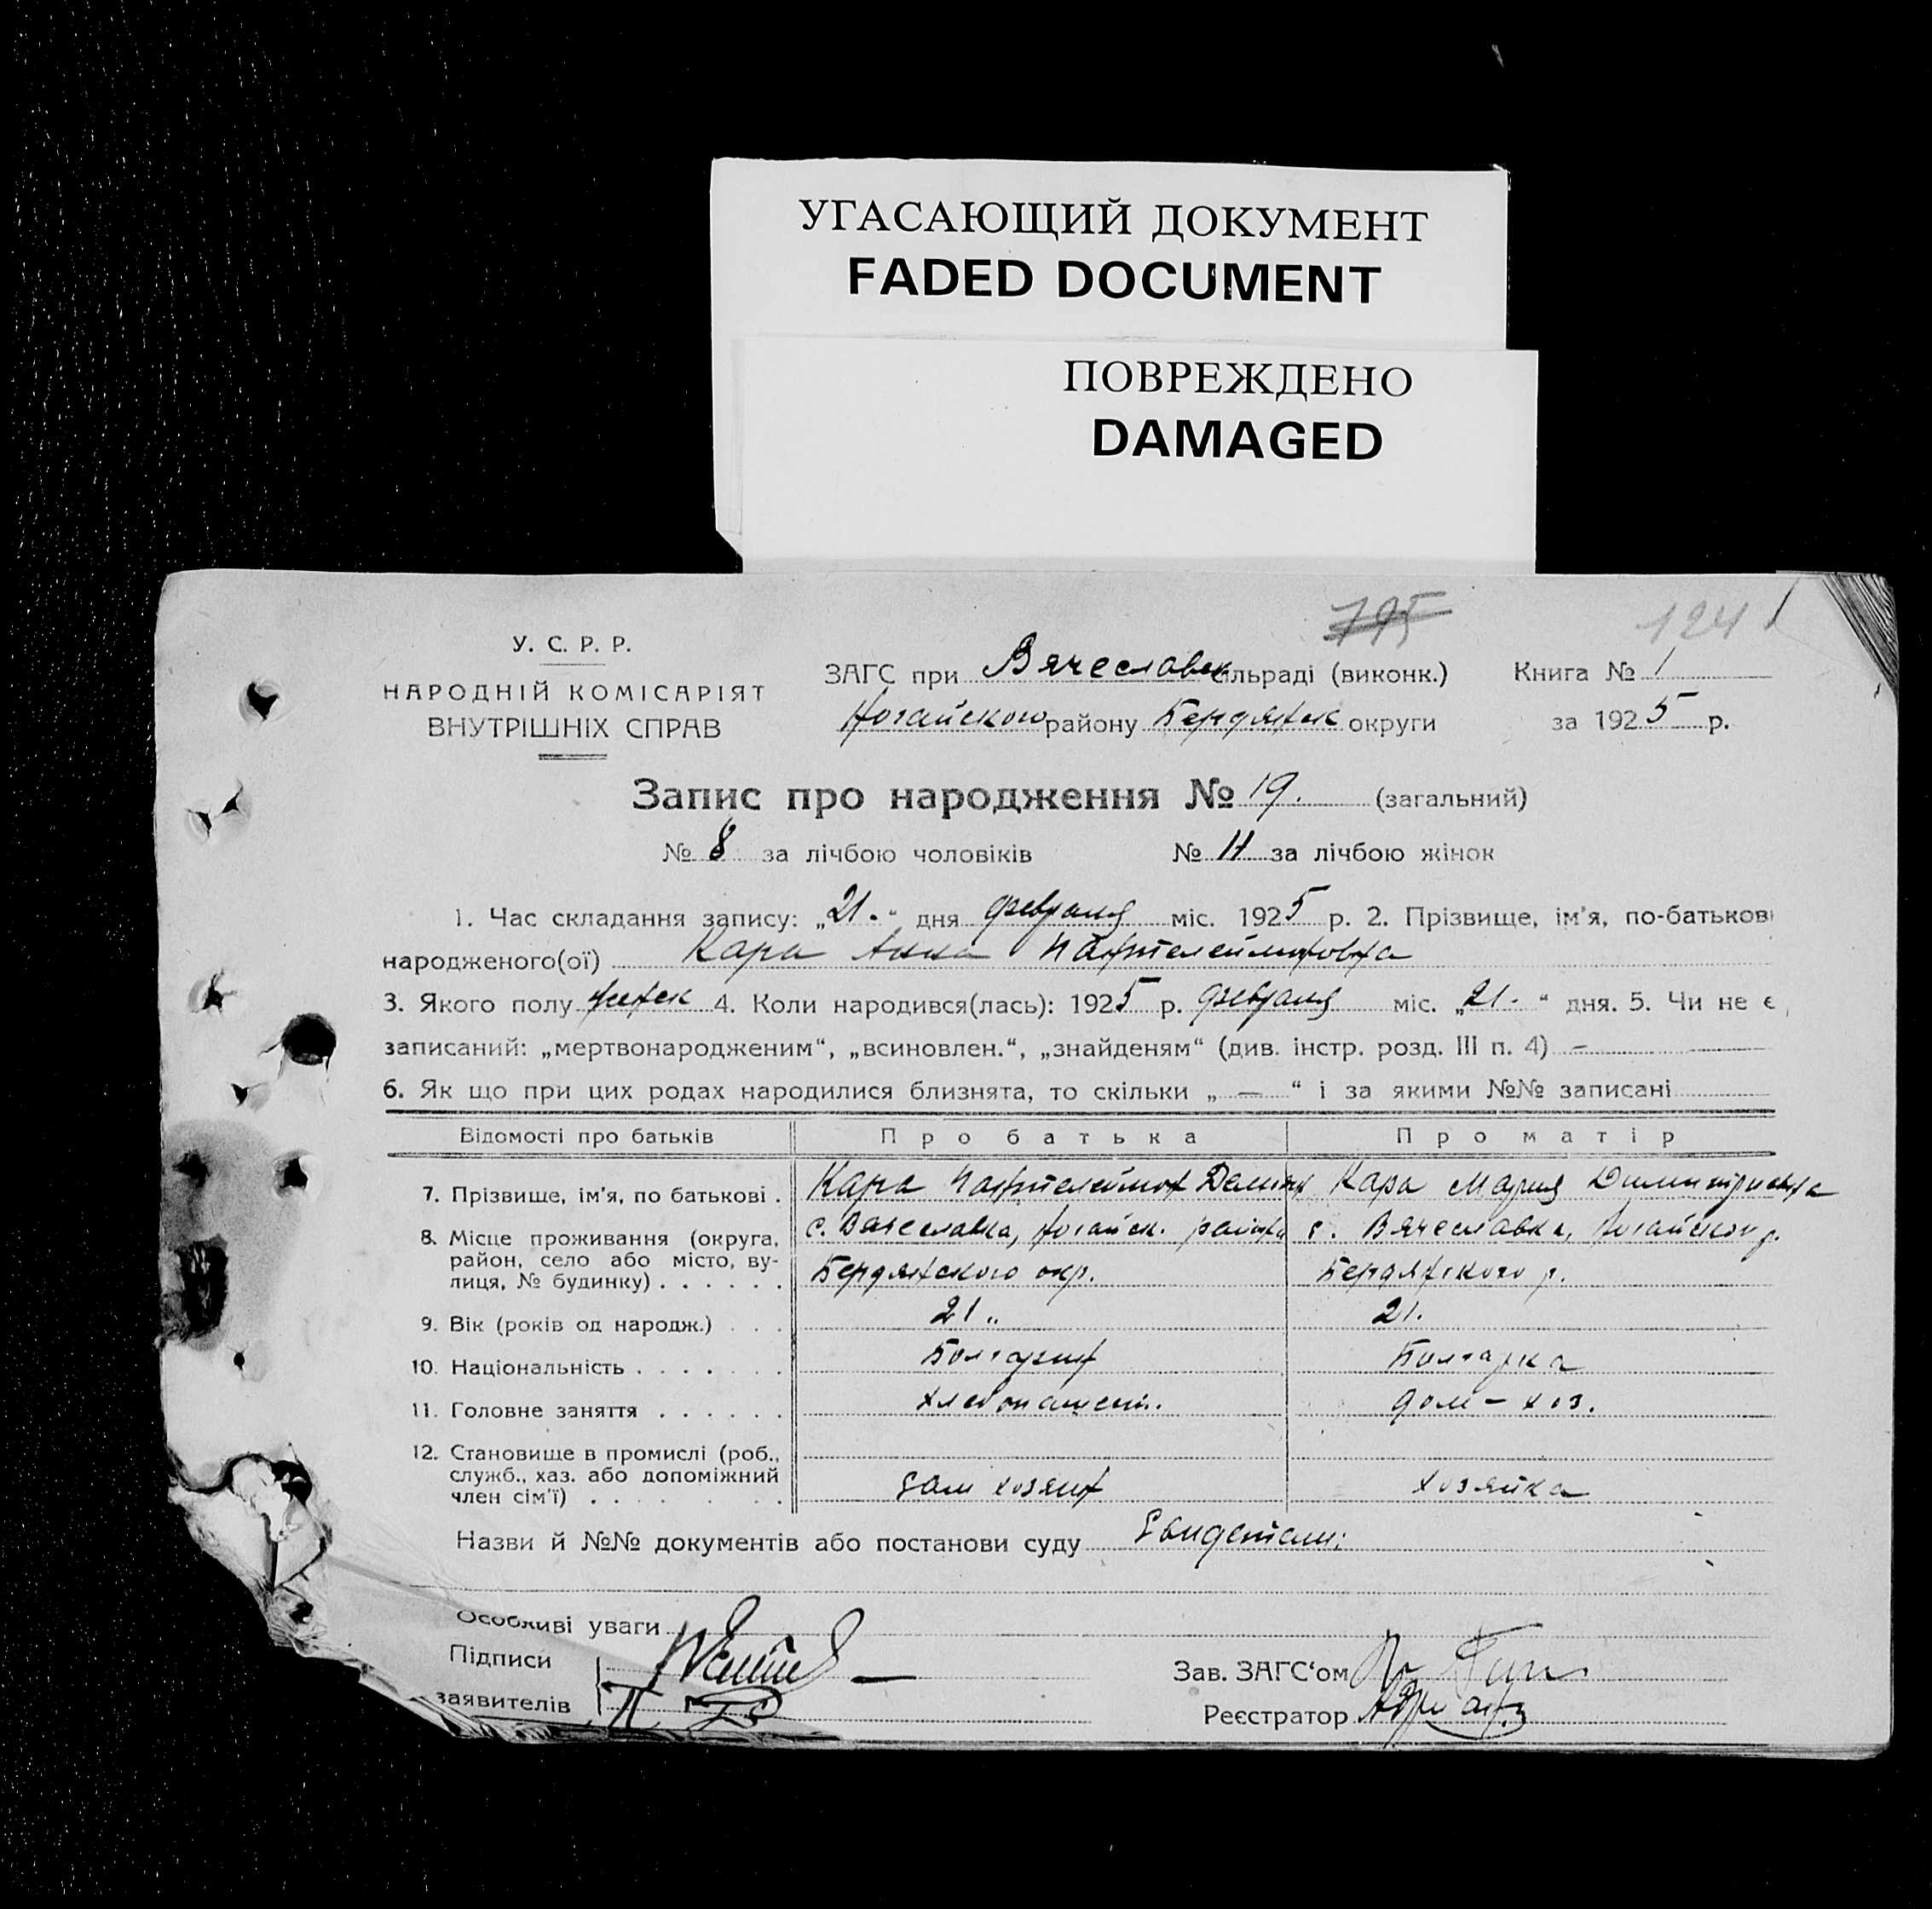 УГАСАЮЩИЙ ДОКУМЕНТ
FADED DOCUMENT
ПОВРЕЖДЕНО
DAMAGED
795
124
У. С. Р. Р.
НАРОДНІЙ КОМІСАРІЯТ
ВНУТРІШНІХ СПРАВ
ЗАГС при Вячеславск сільраді (виконк.)
Ногайского району Бердянск округи
Книга № 1
за 1925 р.
Запис про народження № 19. (загальний)
№ 8 за лічбою чоловіків № 11 за лічбою жінок
1. Час складання запису: „21.“ дня февраля міс. 1925 р. 2. Прізвище, ім'я, по-батькові
народженого(ої) Кара Анна Пантелеймоновна
3. Якого полу женск 4. Коли народився(лась): 1925 р. февраля міс. „21.“ дня. 5. Чи не є
записаний: „мертвонародженим“, „всиновлен.“, „знайденям“ (див. інстр. розд. III п. 4) –
6. Як що при цих родах народилися близнята, то скільки „ — “ і за якими №№ записані
Відомості про батьків Про батька Про матір
7. Прізвище, ім'я, по батькові . Кара Пантелеймон Кара Мария Димитриевна
8. Місце проживання (округа, с. Вячеславка, Ногайск. района с. Вячеславка, Ногайског р.
район, село або місто, ву-
лиця, № будинку) . . . . . . Бердянского окр. Бердянского р.
9. Вік (років од народж.) . . . 21 „ 21.
10. Національність . . . . . . . Болгарин Болгарка
11. Головне заняття . . . . . . хлебопашест. дом – хоз.
12. Становище в промислі (роб.,
служб., хаз. або допоміжний
член сім'ї) . . . . . . . сам хозяин хозяйка
Назви й №№ документів або постанови суду Свидетели:
Особливі уваги
Підписи
заявителів
Зав. ЗАГС‘ом
Реєстратор